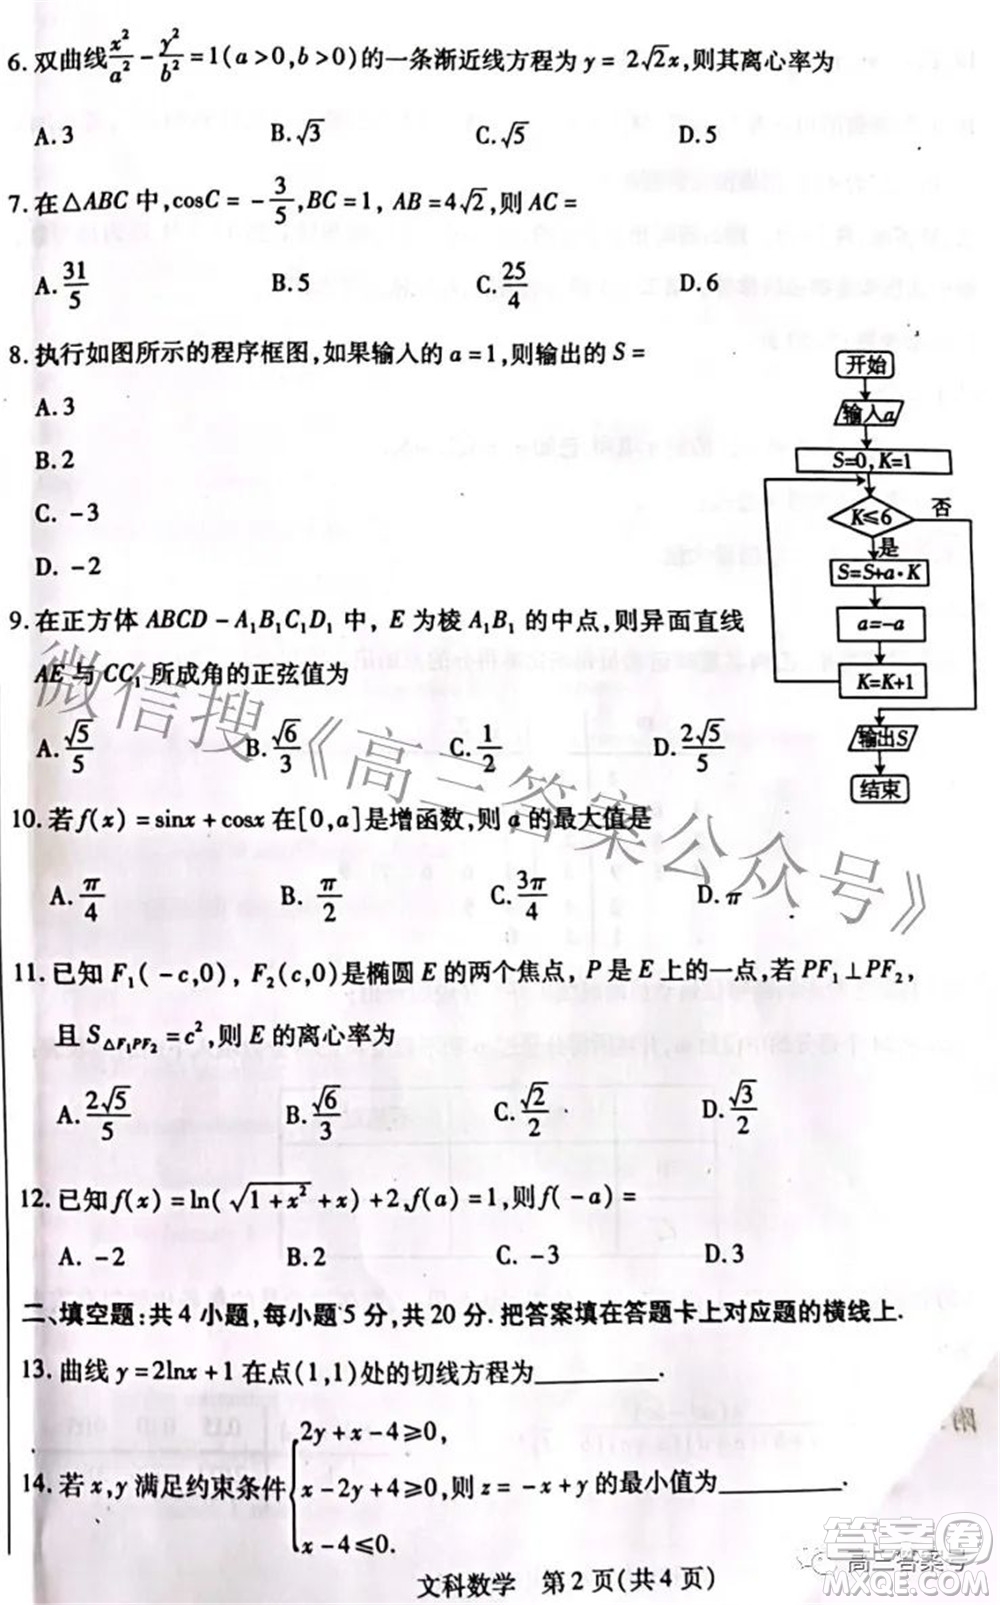 6. 双曲线 x²/a² - y²/b² = 1(a>0,b>0)的一条渐近线方程为 y = 2√2x,则其离心率为
A. 3 B. √3 C. √5 D. 5
7. 在△ABC 中,cosC = -3/5,BC = 1, AB = 4√2,则 AC =
A. 31/5 B. 5 C. 25/4 D. 6
8. 执行如图所示的程序框图,如果输入的 a = 1,则输出的 S =
A. 3
B. 2
C. -3
D. -2
开始
输入a
S=0,K=1
K≤6
否
是
S=S+a·K
a=-a
K=K+1
输出S
结束
9. 在正方体 ABCD - A₁B₁C₁D₁ 中, E 为棱 A₁B₁ 的中点,则异面直线
AE 与 CC₁ 所成角的正弦值为
A. √5/5 B. √6/3 C. 1/2 D. 2√5/5
10. 若 f(x) = sinx + cosx 在[0,a]是增函数,则 a 的最大值是
A. π/4 B. π/2 C. 3π/4 D. π
11. 已知 F₁(-c,0), F₂(c,0)是椭圆 E 的两个焦点, P 是 E 上的一点,若 PF₁⊥PF₂,
且 S△F₁PF₂ = c²,则 E 的离心率为
A. 2√5/5 B. √6/3 C. √2/2 D. √3/2
12. 已知 f(x) = ln(√(1+x²) + x) + 2,f(a) = 1,则 f(-a) =
A. -2 B. 2 C. -3 D. 3
二、填空题:共 4 小题,每小题 5 分,共 20 分. 把答案填在答题卡上对应题的横线上.
13. 曲线 y = 2lnx + 1 在点(1,1)处的切线方程为________.
14. 若 x,y 满足约束条件 { 2y + x - 4 ≥ 0, x - 2y + 4 ≥ 0, x - 4 ≤ 0. 则 z = -x + y 的最小值为________.
文科数学 第 2 页(共 4 页)
微信搜《高三答案公众号》
高三答案号
答案圈
MXQE.COM